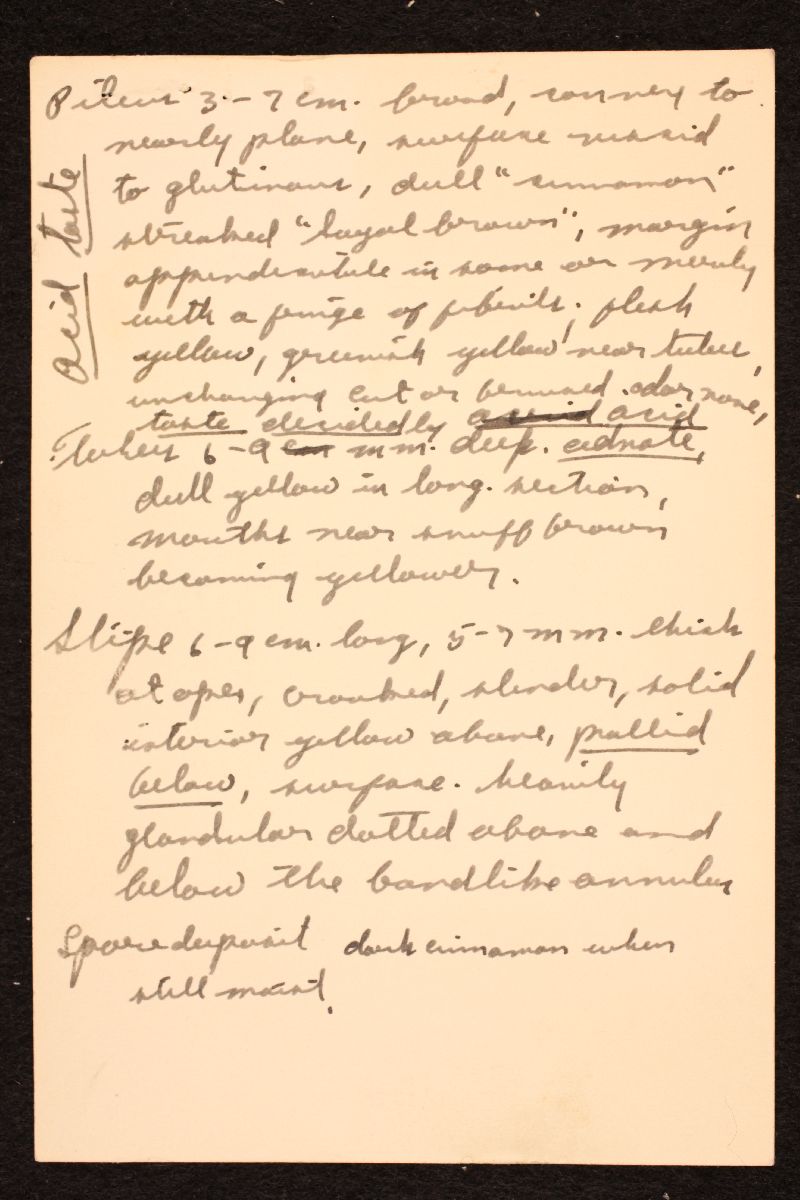 Pileus 3-7 cm. broad, convex to
nearly plane, surface viscid
to glutinous, dull "cinnamon"
streaked "Sayal brown", margin
appendiculate in some or merely
with a fringe of fibrils; flesh
yellow, greenish yellow near tubes,
unchanging cut or bruised. odor none,
taste decidedly acrid acid
acid taste
Tubes 6-9 cm mm. deep. adnate,
dull yellow in long. section,
mouths near snuff brown
becoming yellower.
Stipe 6-9 cm. long, 5-7 mm. thick
at apex, crooked, slender, solid
interior yellow above, pallid
below, surface. heavily
glandular dotted above and
below the bandlike annulus
Spore deposit dark cinnamon when
still moist.